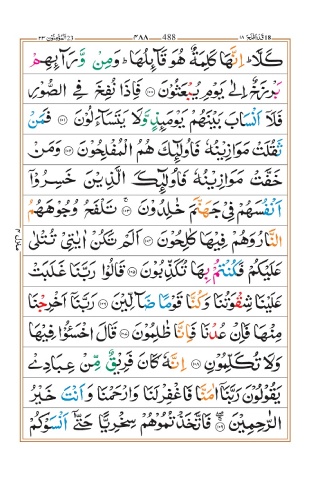 قد افلح ١٨ 488 ٤٨٨ المؤمنون ٢٣
كَلَّا ؕ اِنَّهَا كَلِمَةٌ هُوَ قَآىِٕلُهَا ؕ وَمِنْ وَّرَآىِٕهِمْ
بَرْزَخٌ اِلٰى يَوْمِ يُبْعَثُوْنَ ۝۱۰۰ فَاِذَا نُفِخَ فِى الصُّوْرِ
فَلَاۤ اَنْسَابَ بَيْنَهُمْ يَوْمَىِٕذٍ وَّلَا يَتَسَآءَلُوْنَ ۝۱۰۱ فَمَنْ
ثَقُلَتْ مَوَازِيْنُهٗ فَاُولٰٓىِٕكَ هُمُ الْمُفْلِحُوْنَ ۝۱۰۲ وَمَنْ
خَفَّتْ مَوَازِيْنُهٗ فَاُولٰٓىِٕكَ الَّذِيْنَ خَسِرُوْۤا
اَنْفُسَهُمْ فِىْ جَهَنَّمَ خٰلِدُوْنَ ۝۱۰۳ تَلْفَحُ وُجُوْهَهُمُ
النَّارُ وَهُمْ فِيْهَا كٰلِحُوْنَ ۝۱۰۴ اَلَمْ تَكُنْ اٰيٰتِىْ تُتْلٰى
عَلَيْكُمْ فَكُنْتُمْ بِهَا تُكَذِّبُوْنَ ۝۱۰۵ قَالُوْا رَبَّنَا غَلَبَتْ
عَلَيْنَا شِقْوَتُنَا وَكُنَّا قَوْمًا ضَآلِّيْنَ ۝۱۰۶ رَبَّنَاۤ اَخْرِجْنَا
مِنْهَا فَاِنْ عُدْنَا فَاِنَّا ظٰلِمُوْنَ ۝۱۰۷ قَالَ اخْسَـُٔوْا فِيْهَا
وَلَا تُكَلِّمُوْنِ ۝۱۰۸ اِنَّهٗ كَانَ فَرِيْقٌ مِّنْ عِبَادِىْ
يَقُوْلُوْنَ رَبَّنَاۤ اٰمَنَّا فَاغْفِرْ لَنَا وَارْحَمْنَا وَاَنْتَ خَيْرُ
الرّٰحِمِيْنَ ۝۱۰۹ فَاتَّخَذْتُمُوْهُمْ سِخْرِيًّا حَتّٰۤى اَنْسَوْكُمْ